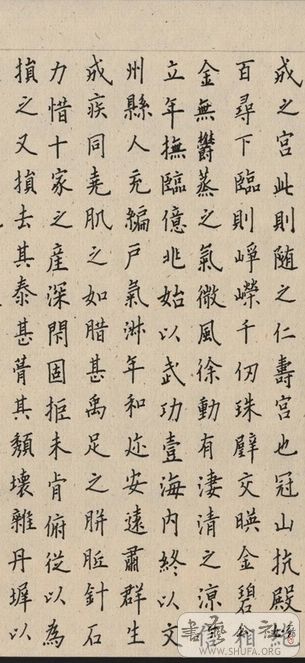 成之宮此則随之仁壽宮也冠山抗殿絕
百尋下臨則崢嶸千仞珠璧交暎金碧相
金無鬱蒸之氣微風徐動有淒清之涼
立年撫臨億兆始以武功壹海内終以文
州縣人充編戶氣淋年和迩安遠肅群生
成疾同堯肌之如腊甚禹足之胼胝針石
力惜十家之産深閇固拒未肯俯從以為
損之又損去其泰甚葺其頹壞雜丹墀以
WWW.SHUFA.ORG